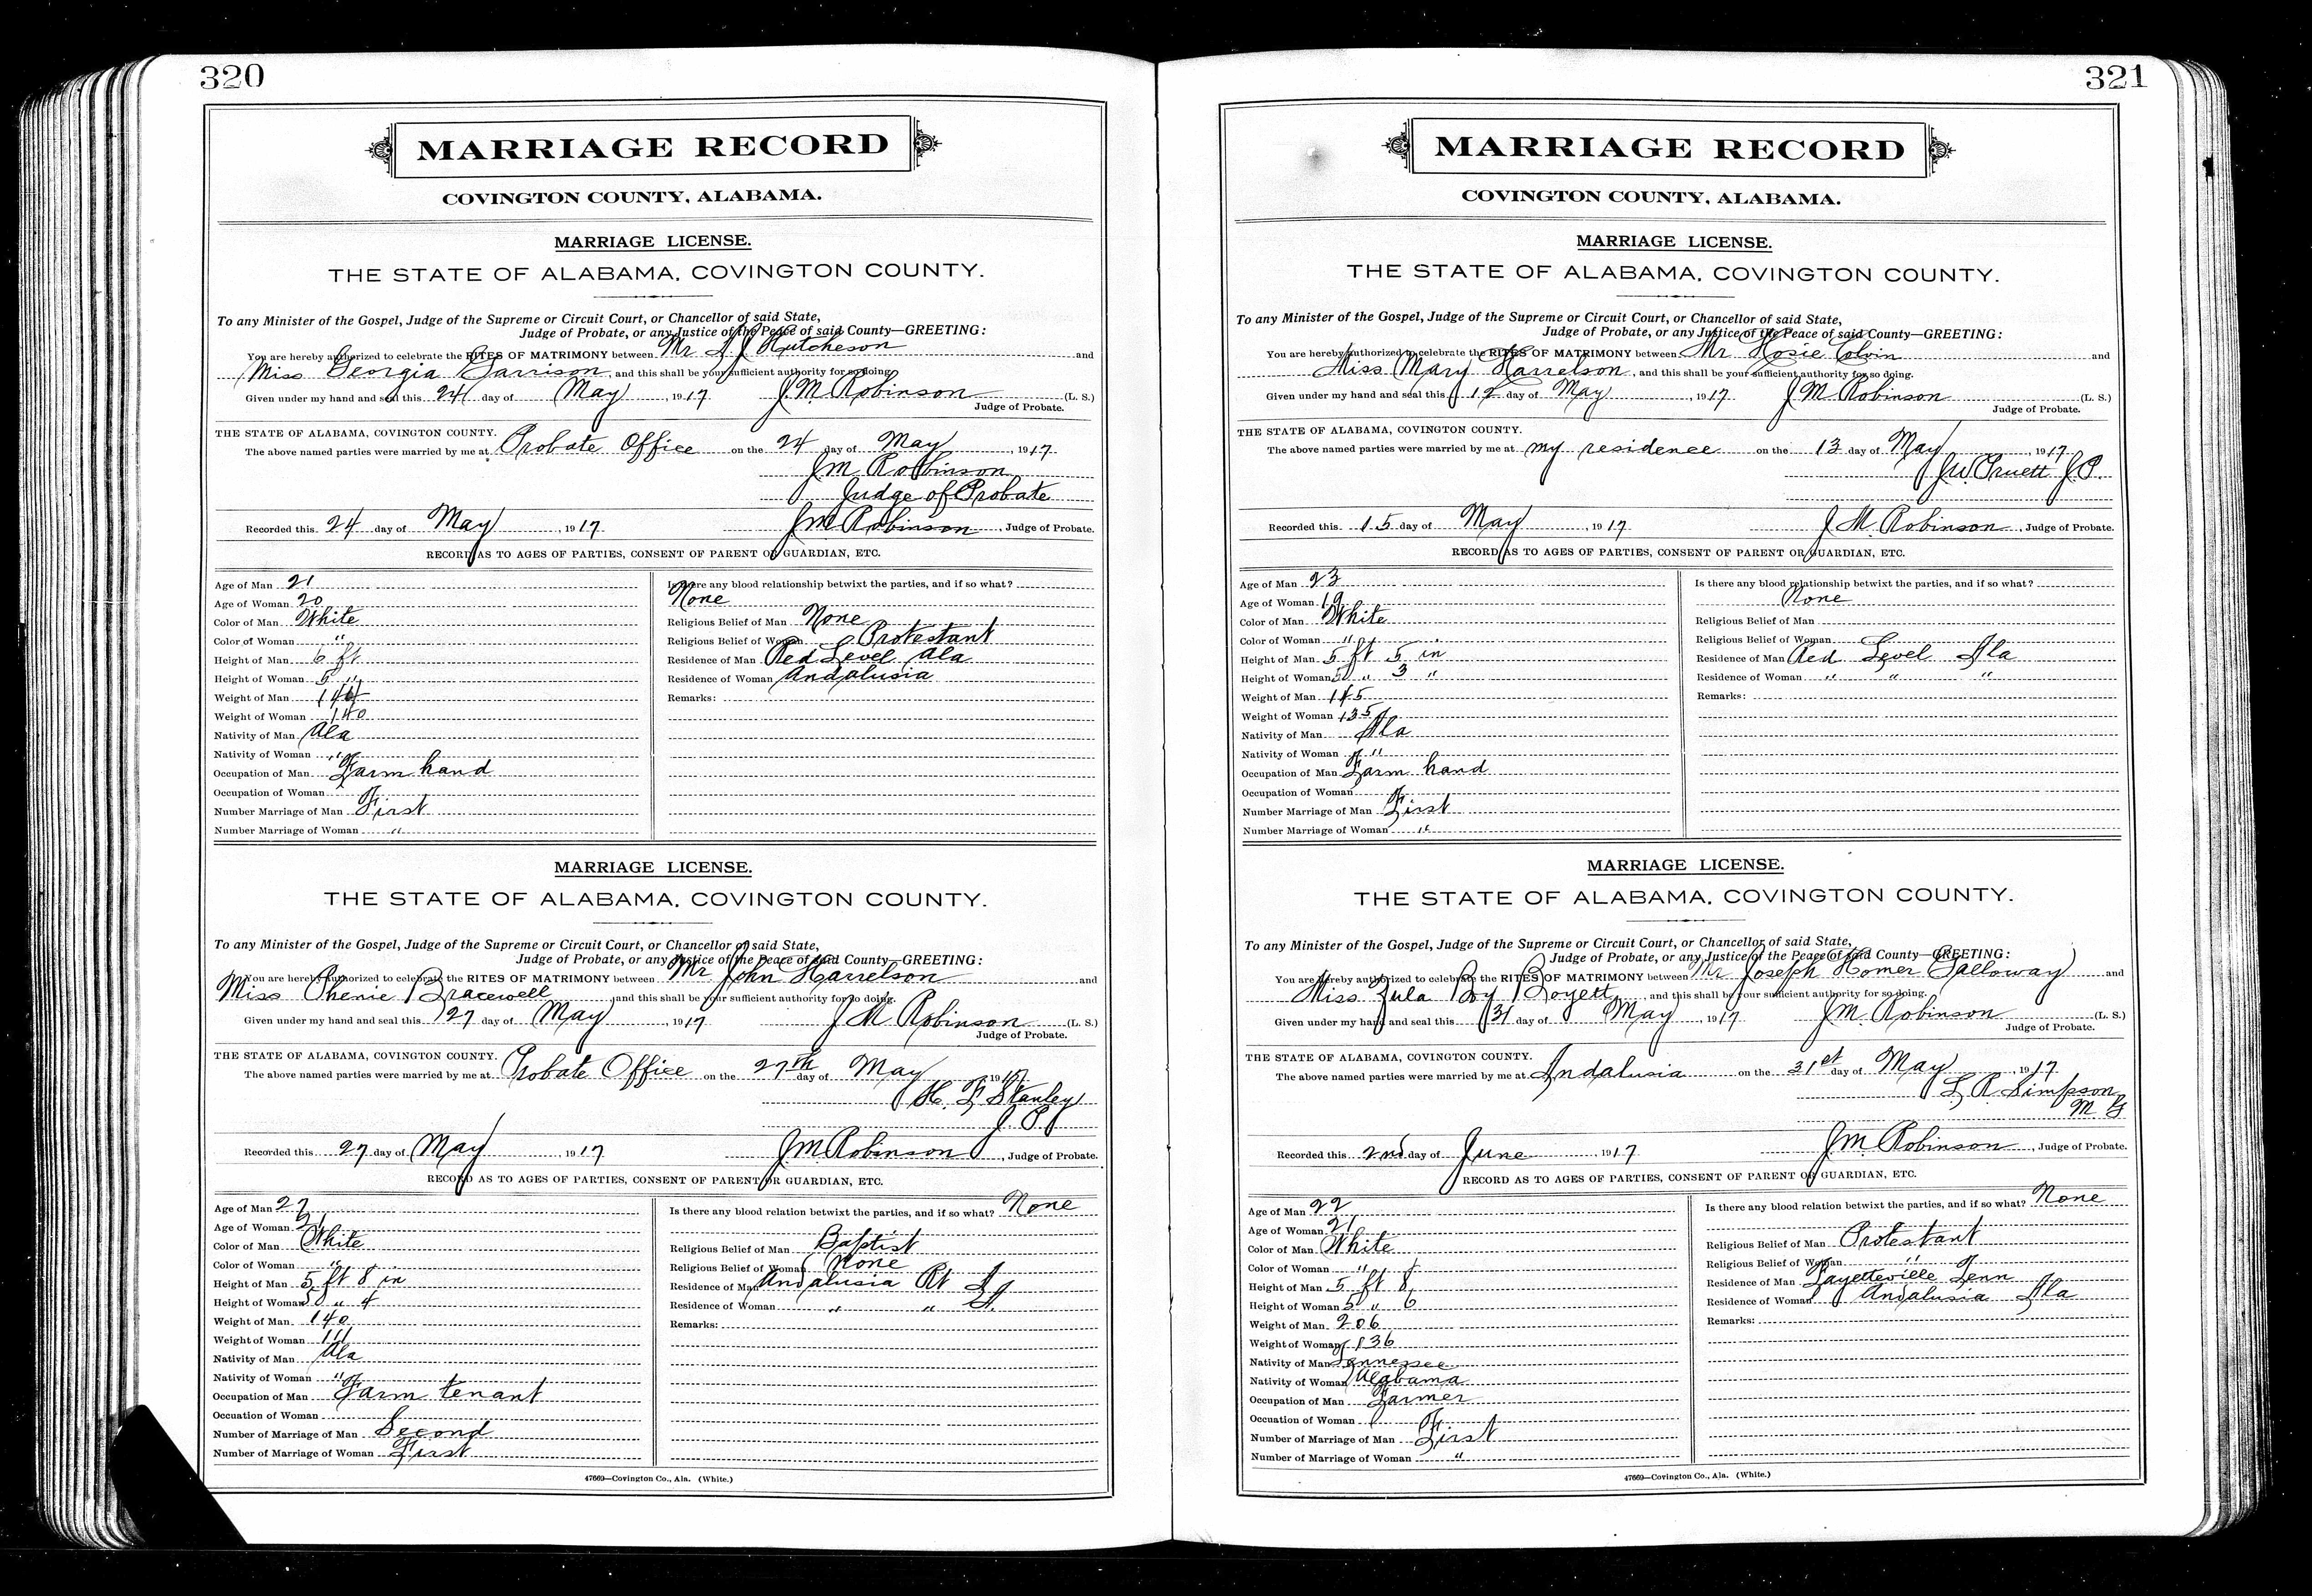 320
MARRIAGE RECORD
COVINGTON COUNTY, ALABAMA.
MARRIAGE LICENSE.
THE STATE OF ALABAMA, COVINGTON COUNTY.
To any Minister of the Gospel, Judge of the Supreme or Circuit Court, or Chancellor of said State,
Judge of Probate, or any Justice of the Peace of said County—GREETING:
You are hereby authorized to celebrate the RITES OF MATRIMONY between Mr Hutcheson and
Miss Georgia Garrison, and this shall be your sufficient authority for so doing.
Given under my hand and seal this 24 day of May, 1917 J. M. Robinson (L. S.)
Judge of Probate.
THE STATE OF ALABAMA, COVINGTON COUNTY.
The above named parties were married by me at Probate Office on the 24 day of May, 1917
J M Robinson
Judge of Probate
Recorded this 24 day of May, 1917 J M Robinson, Judge of Probate.
RECORD AS TO AGES OF PARTIES, CONSENT OF PARENT OR GUARDIAN, ETC.
Age of Man 21
Age of Woman 20
Color of Man White
Color of Woman "
Height of Man 6 ft
Height of Woman 5 "
Weight of Man
Weight of Woman 140
Nativity of Man Ala
Nativity of Woman "
Occupation of Man Farm hand
Occupation of Woman
Number Marriage of Man First
Number Marriage of Woman "
Is there any blood relationship betwixt the parties, and if so what?
None
Religious Belief of Man None
Religious Belief of Woman Protestant
Residence of Man Red Level Ala
Residence of Woman Andalusia
Remarks:
MARRIAGE LICENSE.
THE STATE OF ALABAMA, COVINGTON COUNTY.
To any Minister of the Gospel, Judge of the Supreme or Circuit Court, or Chancellor of said State,
Judge of Probate, or any Justice of the Peace of said County—GREETING:
You are hereby authorized to celebrate the RITES OF MATRIMONY between Mr John Harrelson and
Miss Phenie Bracewell, and this shall be your sufficient authority for so doing.
Given under my hand and seal this 27 day of May, 1917 J M Robinson (L. S.)
Judge of Probate.
THE STATE OF ALABAMA, COVINGTON COUNTY.
The above named parties were married by me at Probate Office on the 27th day of May 1917
H. F Stanley
J. P
Recorded this 27 day of May, 1917 J M Robinson, Judge of Probate.
RECORD AS TO AGES OF PARTIES, CONSENT OF PARENT OR GUARDIAN, ETC.
Age of Man 27
Age of Woman 21
Color of Man White
Color of Woman "
Height of Man 5 ft 8 in
Height of Woman 5 " 4
Weight of Man 140
Weight of Woman 111
Nativity of Man Ala
Nativity of Woman "
Occupation of Man Farm tenant
Occuation of Woman
Number of Marriage of Man Second
Number of Marriage of Woman First
Is there any blood relation betwixt the parties, and if so what? None
Religious Belief of Man Baptist
Religious Belief of Woman None
Residence of Man Andalusia Rt
Residence of Woman " "
Remarks:
47669—Covington Co., Ala. (White.)
321
MARRIAGE RECORD
COVINGTON COUNTY, ALABAMA.
MARRIAGE LICENSE.
THE STATE OF ALABAMA, COVINGTON COUNTY.
To any Minister of the Gospel, Judge of the Supreme or Circuit Court, or Chancellor of said State,
Judge of Probate, or any Justice of the Peace of said County—GREETING:
You are hereby authorized to celebrate the RITES OF MATRIMONY between Mr Hosie Colvin and
Miss Mary Harrelson, and this shall be your sufficient authority for so doing.
Given under my hand and seal this 12 day of May, 1917 J M Robinson (L. S.)
Judge of Probate.
THE STATE OF ALABAMA, COVINGTON COUNTY.
The above named parties were married by me at my residence on the 13 day of May, 1917
J W Pruett J. P.
Recorded this 15 day of May, 1917 J M Robinson, Judge of Probate.
RECORD AS TO AGES OF PARTIES, CONSENT OF PARENT OR GUARDIAN, ETC.
Age of Man 23
Age of Woman 19
Color of Man White
Color of Woman "
Height of Man 5 ft 5 in
Height of Woman 5 " 3 "
Weight of Man
Weight of Woman 135
Nativity of Man Ala
Nativity of Woman "
Occupation of Man Farm hand
Occupation of Woman
Number Marriage of Man First
Number Marriage of Woman "
Is there any blood relationship betwixt the parties, and if so what?
None
Religious Belief of Man
Religious Belief of Woman
Residence of Man Red Level Ala
Residence of Woman " " "
Remarks:
MARRIAGE LICENSE.
THE STATE OF ALABAMA, COVINGTON COUNTY.
To any Minister of the Gospel, Judge of the Supreme or Circuit Court, or Chancellor of said State,
Judge of Probate, or any Justice of the Peace of said County—GREETING:
You are hereby authorized to celebrate the RITES OF MATRIMONY between Mr Joseph Homer Galloway and
Miss Zula Boyett, and this shall be your sufficient authority for so doing.
Given under my hand and seal this 31 day of May, 1917 J M. Robinson (L. S.)
Judge of Probate.
THE STATE OF ALABAMA, COVINGTON COUNTY.
The above named parties were married by me at Andalusia on the 31st day of May, 1917
L R Simpson
M G
Recorded this 2nd day of June, 1917 J M Robinson, Judge of Probate.
RECORD AS TO AGES OF PARTIES, CONSENT OF PARENT OR GUARDIAN, ETC.
Age of Man 22
Age of Woman 21
Color of Man White
Color of Woman "
Height of Man 5 ft 8
Height of Woman 5 " 6
Weight of Man 206
Weight of Woman 136
Nativity of Man Tennessee
Nativity of Woman Alabama
Occupation of Man Farmer
Occuation of Woman
Number of Marriage of Man First
Number of Marriage of Woman "
Is there any blood relation betwixt the parties, and if so what? None
Religious Belief of Man Protestant
Religious Belief of Woman "
Residence of Man Fayetteville Tenn
Residence of Woman Andalusia Ala
Remarks:
47669—Covington Co., Ala. (White.)